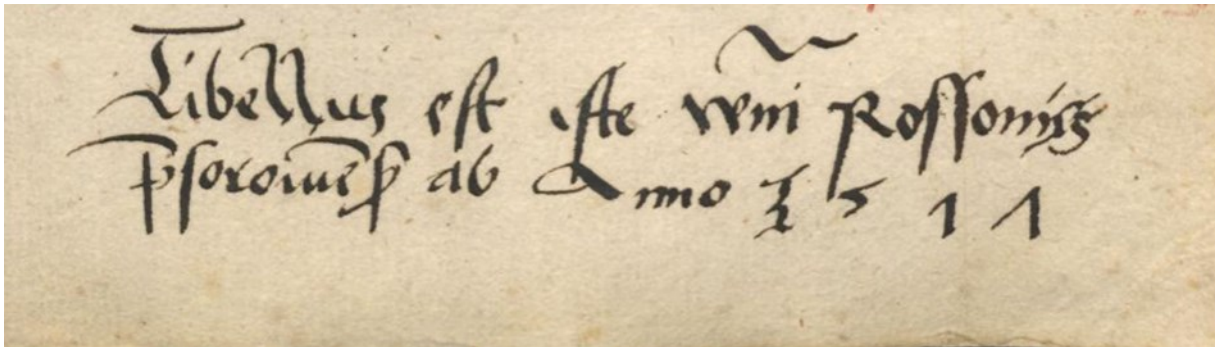 Libellus est iste wm̄i Rossonijs
p̄soroiuēꝑ ab Anno 1511